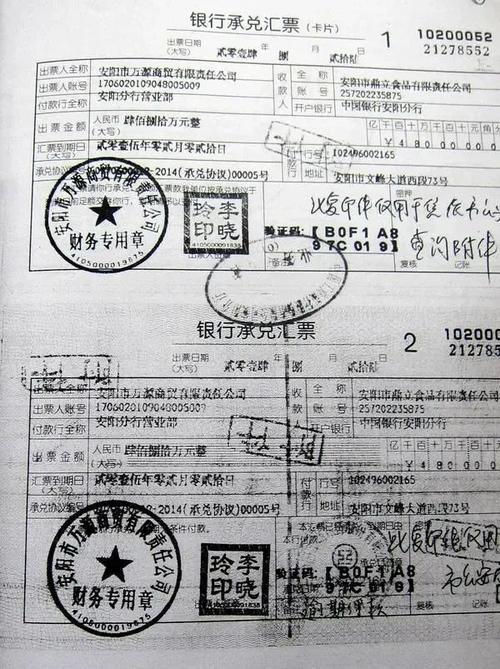 银行承兑汇票(卡片) 1 10200052
21278552
出票日期(大写) 贰零壹肆 捌 贰拾陆
出票人全称 安阳市万源商贸有限责任公司 收款人 全称 安阳市鼎立食品有限责任公司
出票人账号 1706020109048005009 账号 257202235875
付款行全称 安阳分行营业部 开户银行 中国银行安阳分行
出票金额 人民币(大写) 肆佰捌拾万元整 亿千百十万千百十元角
¥480000
汇票到期日(大写) 贰零壹伍年贰月零贰拾日 行号 102496002165
承兑协议 2014(承兑协议)00005号 地址 安阳市文峰大道西段73号
安阳市万源商贸有限责任公司
财务专用章
4105000019875
李晓玲印
4105000091838
此复印件仅用于
验证码:【B0F1A8
97C019】
查询附件
复核 记账
银行承兑汇票 2 1020005
212785
出票日期(大写) 贰零壹肆 捌 贰拾陆
出票人全称 安阳市万源商贸有限责任公司 收款人 全称 安阳市鼎立食品有限责任公司
出票人账号 1706020109048005009 账号 257202235875
付款行全称 安阳分行营业部 开户银行 中国银行安阳分行
出票金额 人民币(大写) 肆佰捌拾万元整 亿千百十万千百十元
¥480000
汇票到期日(大写) 贰零壹伍年贰月零贰拾日 付款行 行号 102496002165
承兑协议编号 2014(承兑协议)00005号 地址 安阳市文峰大道西段73号
安阳市万源商贸有限责任公司
财务专用章
4105000019875
李晓玲印
此复印件仅用
验证码:【B0F1A8
97C019】
复核 记账